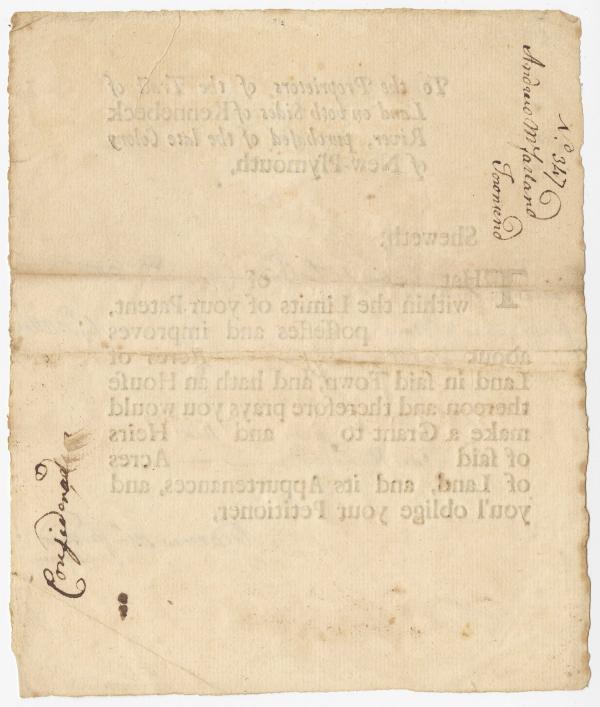 No. 347
Andrew McFarland
Townsend
Considered
To the Proprietors of the Tract of
Land on both Sides of Kennebeck
River, purchased of the late Colony
of New-Plymouth,
Sheweth;
THat of
within the Limits of your Patent,
possesses and improves
about Acres of
Land in said Town, and hath an House
thereon, and therefore prays you would
make a Grant to and Heirs
of said Acres
of Land, and its Appurtenances, and
you'l oblige your Petitioner,